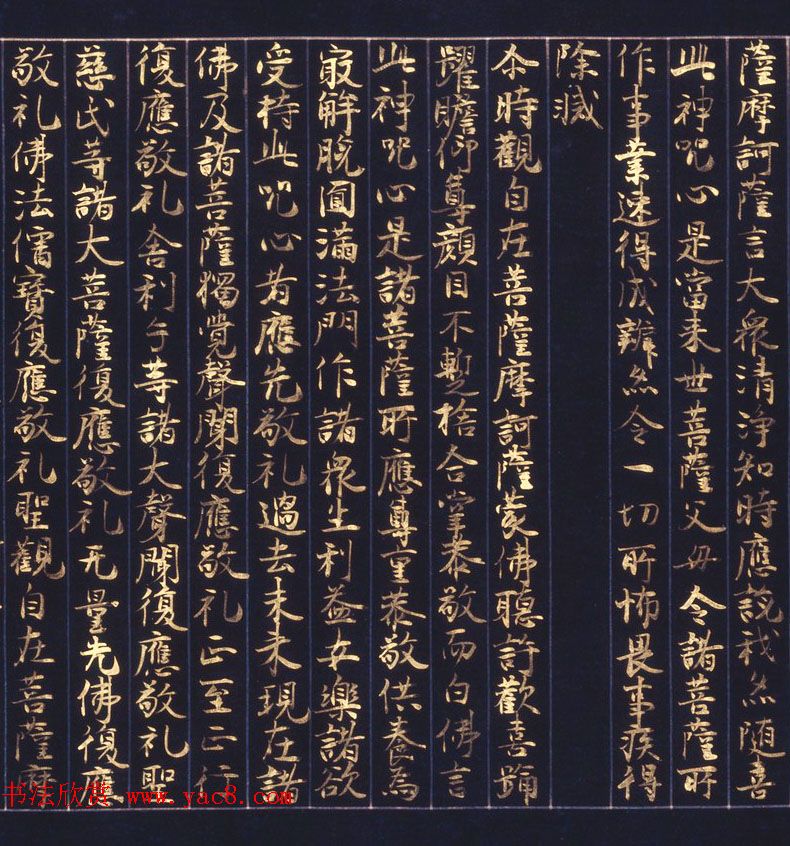 薩摩訶薩言大衆清淨知時應説我亦随喜
此神呪心是當来世菩薩父毋令諸菩薩所
作事業速得成辦亦令一切所怖畏事疾得
除滅
尒時觀自在菩薩摩訶薩蒙佛聽許歡喜踊
躍瞻仰尊顔目不暫捨合掌恭敬而白佛言
此神呪心是諸菩薩所應尊重恭敬供養為
㝡解脫圓滿法門作諸衆生利益安樂諸欲
受持此呪心者應先敬礼過去未来現在諸
佛及諸菩薩獨覺聲聞復應敬礼正至正行
復應敬礼舎利子等諸大聲聞復應敬礼聖
慈氏等諸大菩薩復應敬礼无量先佛復應
敬礼佛法僧寶復應敬礼聖觀自在菩薩摩
书法欣赏 www.yac8.com